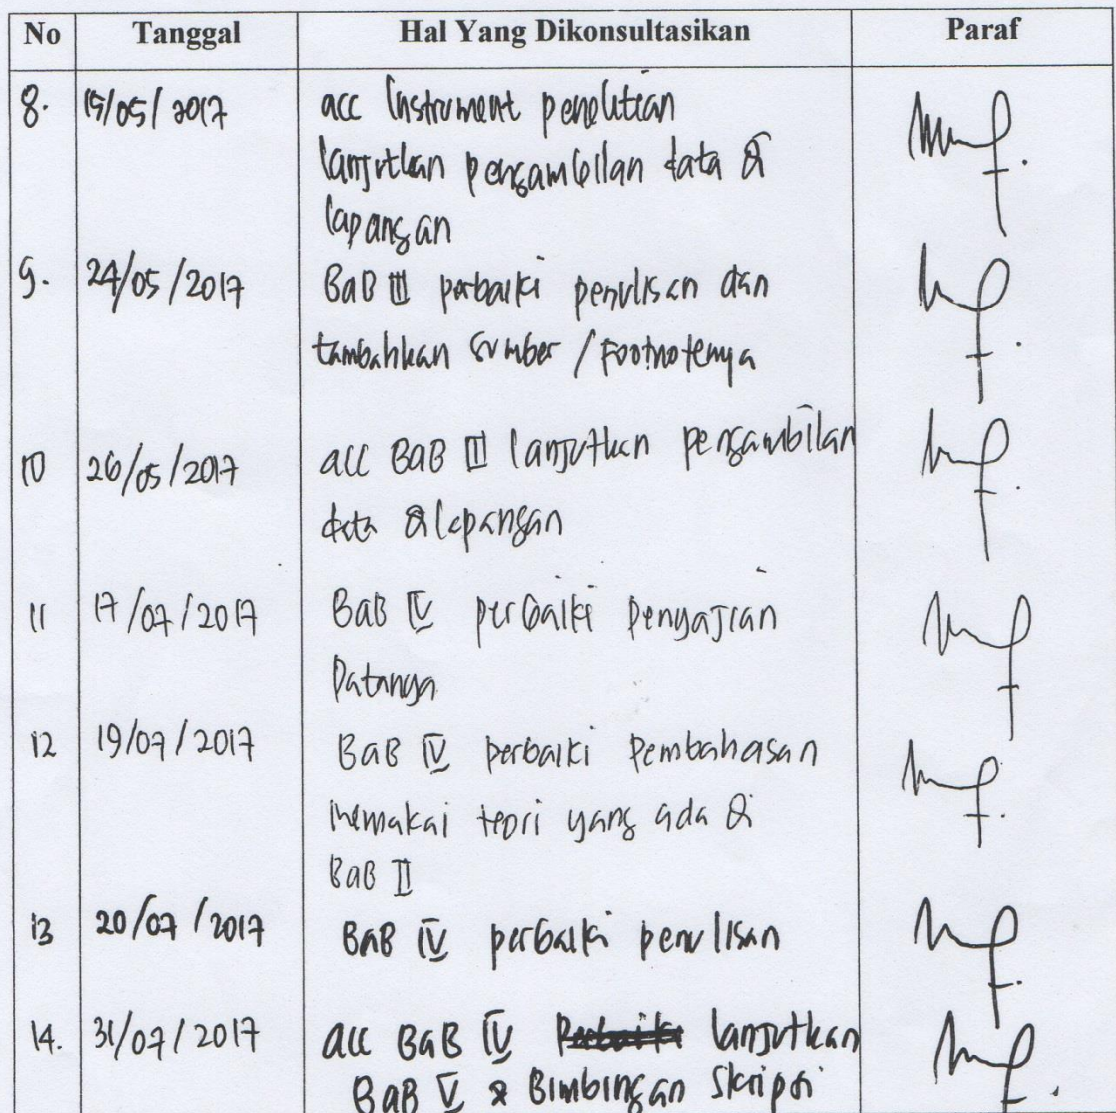 No Tanggal Hal Yang Dikonsultasikan Paraf
8. 15/05/2017 acc Instrument penelitian
lanjutkan pengambilan data di
lapangan
9. 24/05/2017 BaB III perbaiki penulisan dan
tambahkan sumber / Footnotenya
10 26/05/2017 acc BaB III lanjutkan pengambilan
data di lapangan
11 17/07/2017 BaB IV perbaiki Penyajian
Datanya
12 19/07/2017 BaB IV perbaiki Pembahasan
memakai teori yang ada di
BaB II
13 20/07/2017 BaB IV perbaiki penulisan
14. 31/07/2017 acc BaB IV Perbaiki lanjutkan
BaB V & Bimbingan Skripsi